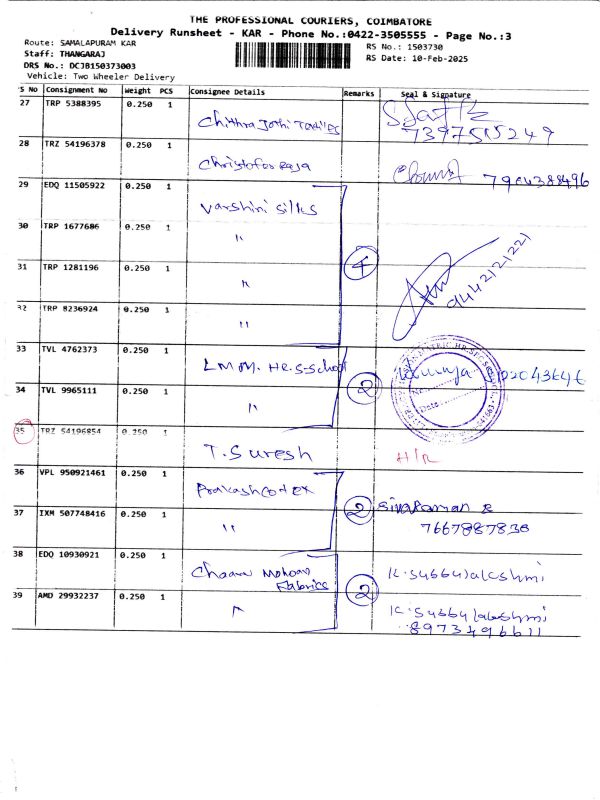 THE PROFESSIONAL COURIERS, COIMBATORE
Delivery Runsheet - KAR - Phone No.:0422-3505555 - Page No.:3
Route: SAMALAPURAM KAR
RS No.: 1503730
Staff: THANGARAJ
RS Date: 10-Feb-2025
DRS No.: DCJB150373003
Vehicle: Two Wheeler Delivery
S No Consignment No Weight PCS Consignee Details Remarks Seal & Signature
27 TRP 5388395 0.250 1
Chithra Jothi Textiles
7397515249
28 TRZ 54196378 0.250 1
Christofar raja
7904388496
29 EDQ 11505922 0.250 1
Varshini Silks
30 TRP 1677686 0.250 1
"
31 TRP 1281196 0.250 1
" 4
9442121221
32 TRP 8236924 0.250 1
"
33 TVL 4762373 0.250 1
L.M.M. HR.S-School
34 TVL 9965111 0.250 1
" 2
35 TRZ 54196854 0.250 1
T. Suresh H/R
36 VPL 950921461 0.250 1
Prakash cortex
37 IXM 507748416 0.250 1
" 2 Sivaraman R
7667887838
38 EDQ 10930921 0.250 1
Chaaru Mohaan Fabrics K. subbulakshmi
39 AMD 29932237 0.250 1
" 2 K. subbulakshmi
8973496611